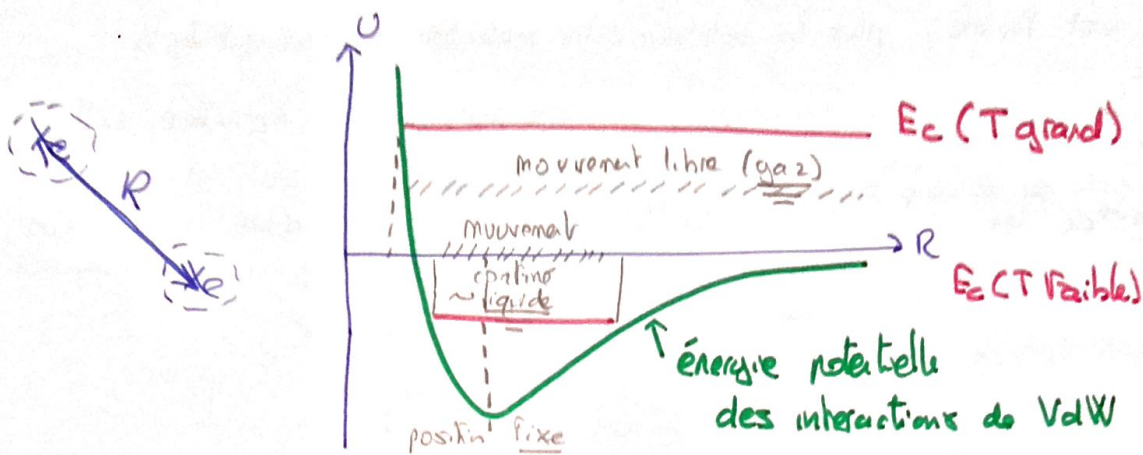 U
Xe
R
Xe
Ec (T grand)
mouvement libre (gaz)
mouvement
confiné
~ liquide
R
Ec (T faible)
énergie potentielle
des interactions de VdW
position fixe